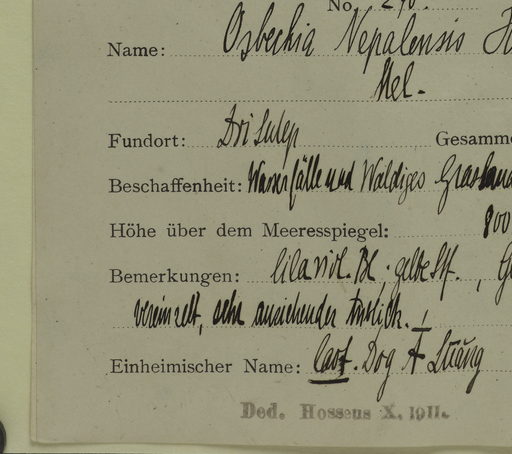 No. 290.
Name: Osbeckia Nepalensis H
Mel.
Fundort: Doi Sutep Gesamme
Beschaffenheit: Wasserfälle und Waldiges Grasland
Höhe über dem Meeresspiegel: 800
Bemerkungen: lilaviol. Bl., gelbe Stf.,
vereinzelt, sehr anziehender Anblick.
Einheimischer Name: Dog
Ded. Hosseus X. 1911.